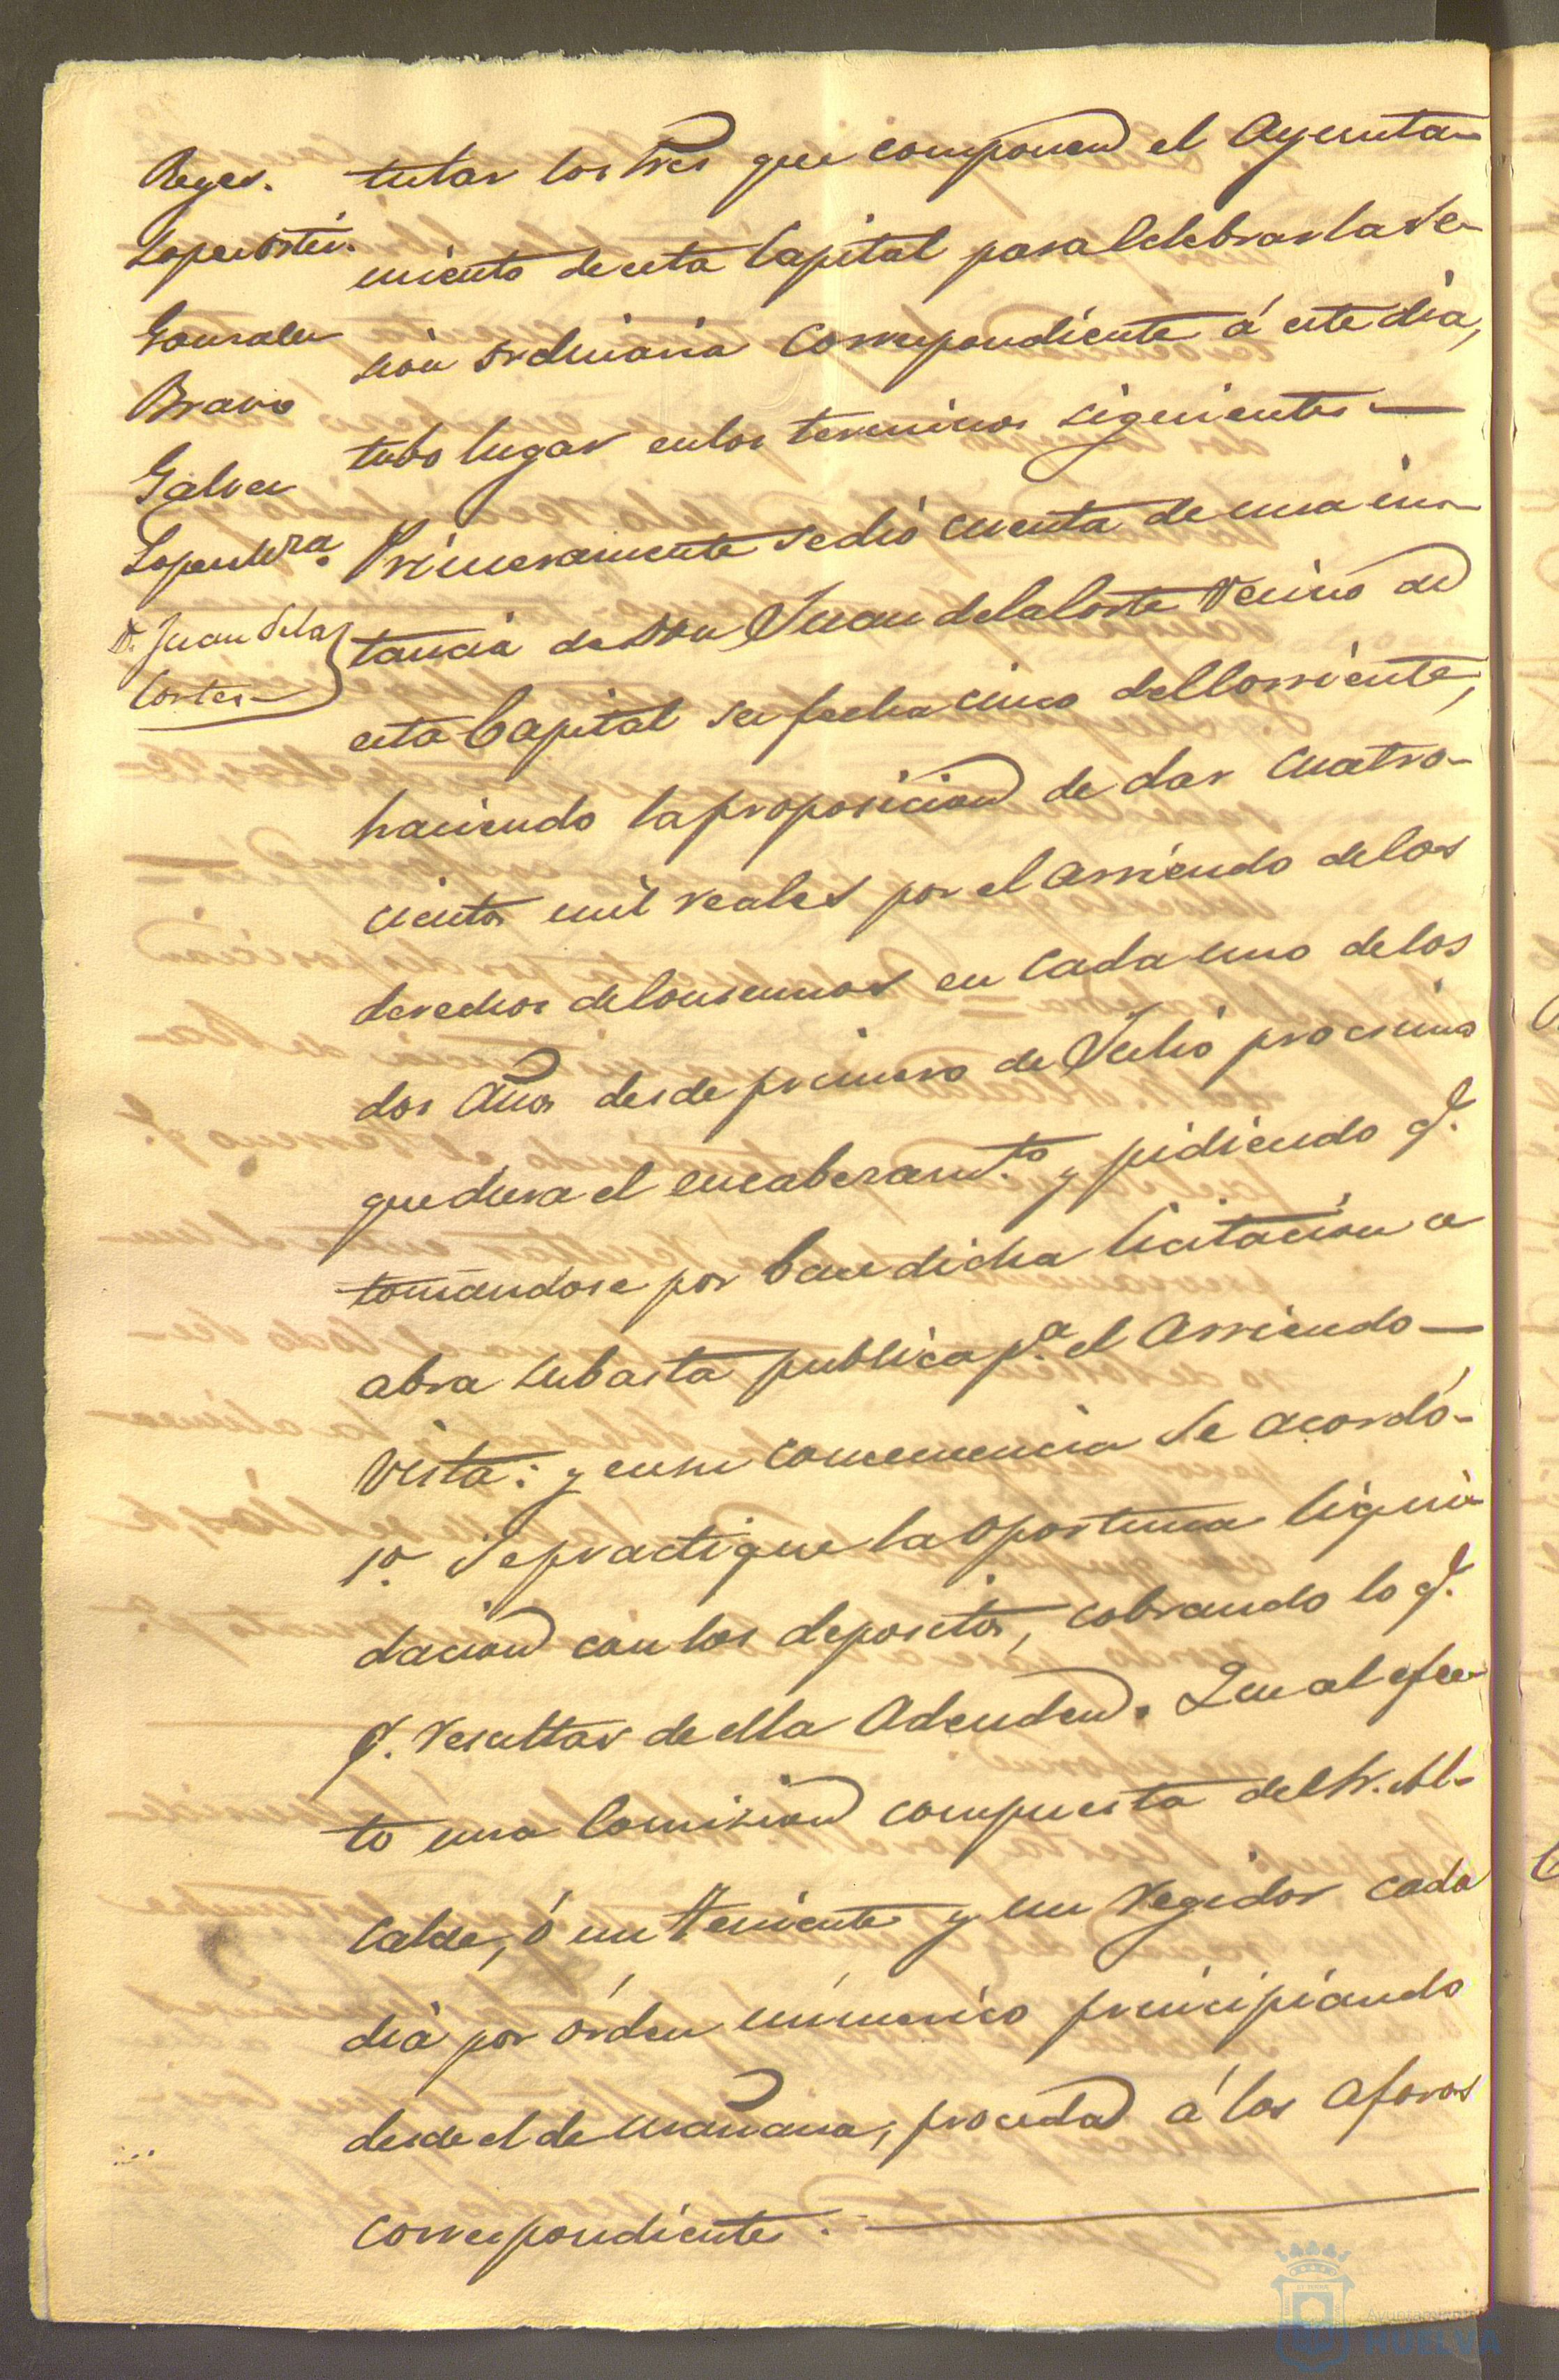 Reyes.
Lopez Ortiz.
Gonzalez
Bravo
Galvez
Lopez
D. Juan de la
Cortes
tular los tres que componen el Ayunta-
miento de esta Capital para Celebrar la Se-
sion ordinaria Correspondiente á este dia,
tubo lugar en los terminos siguientes —
Primeramente se dió cuenta de una ins-
tancia de Don Juan de la Corte vecino de
esta Capital su fecha cinco del Corriente,
haciendo la proposicion de dar cuatro-
cientos mil reales por el arriendo de los
derechos de Consumos en cada uno de los
dos Años desde primero de Julio procsimo
que dura el encabezam.to y pidiendo q.e
tomandose por base dicha licitacion se
abra subasta publica p.a el Arriendo —
Vista: y en su consecuencia Se acordó-
1o. Se practique la oportuna liqui-
dacion con los depositos, cobrando lo q.e
q.e resultar de ella Adeuden. Que al efec-
to una Comision compuesta del Sr. Al-
calde, ó un Teniente y un Regidor cada
dia por órden númerico principiando
desde el de mañana, proceda á los Aforos
correspondientes. —
Ayuntamiento
HUELVA